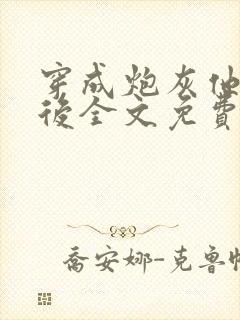 穿成炮灰
後全文免費
喬安娜-克魯